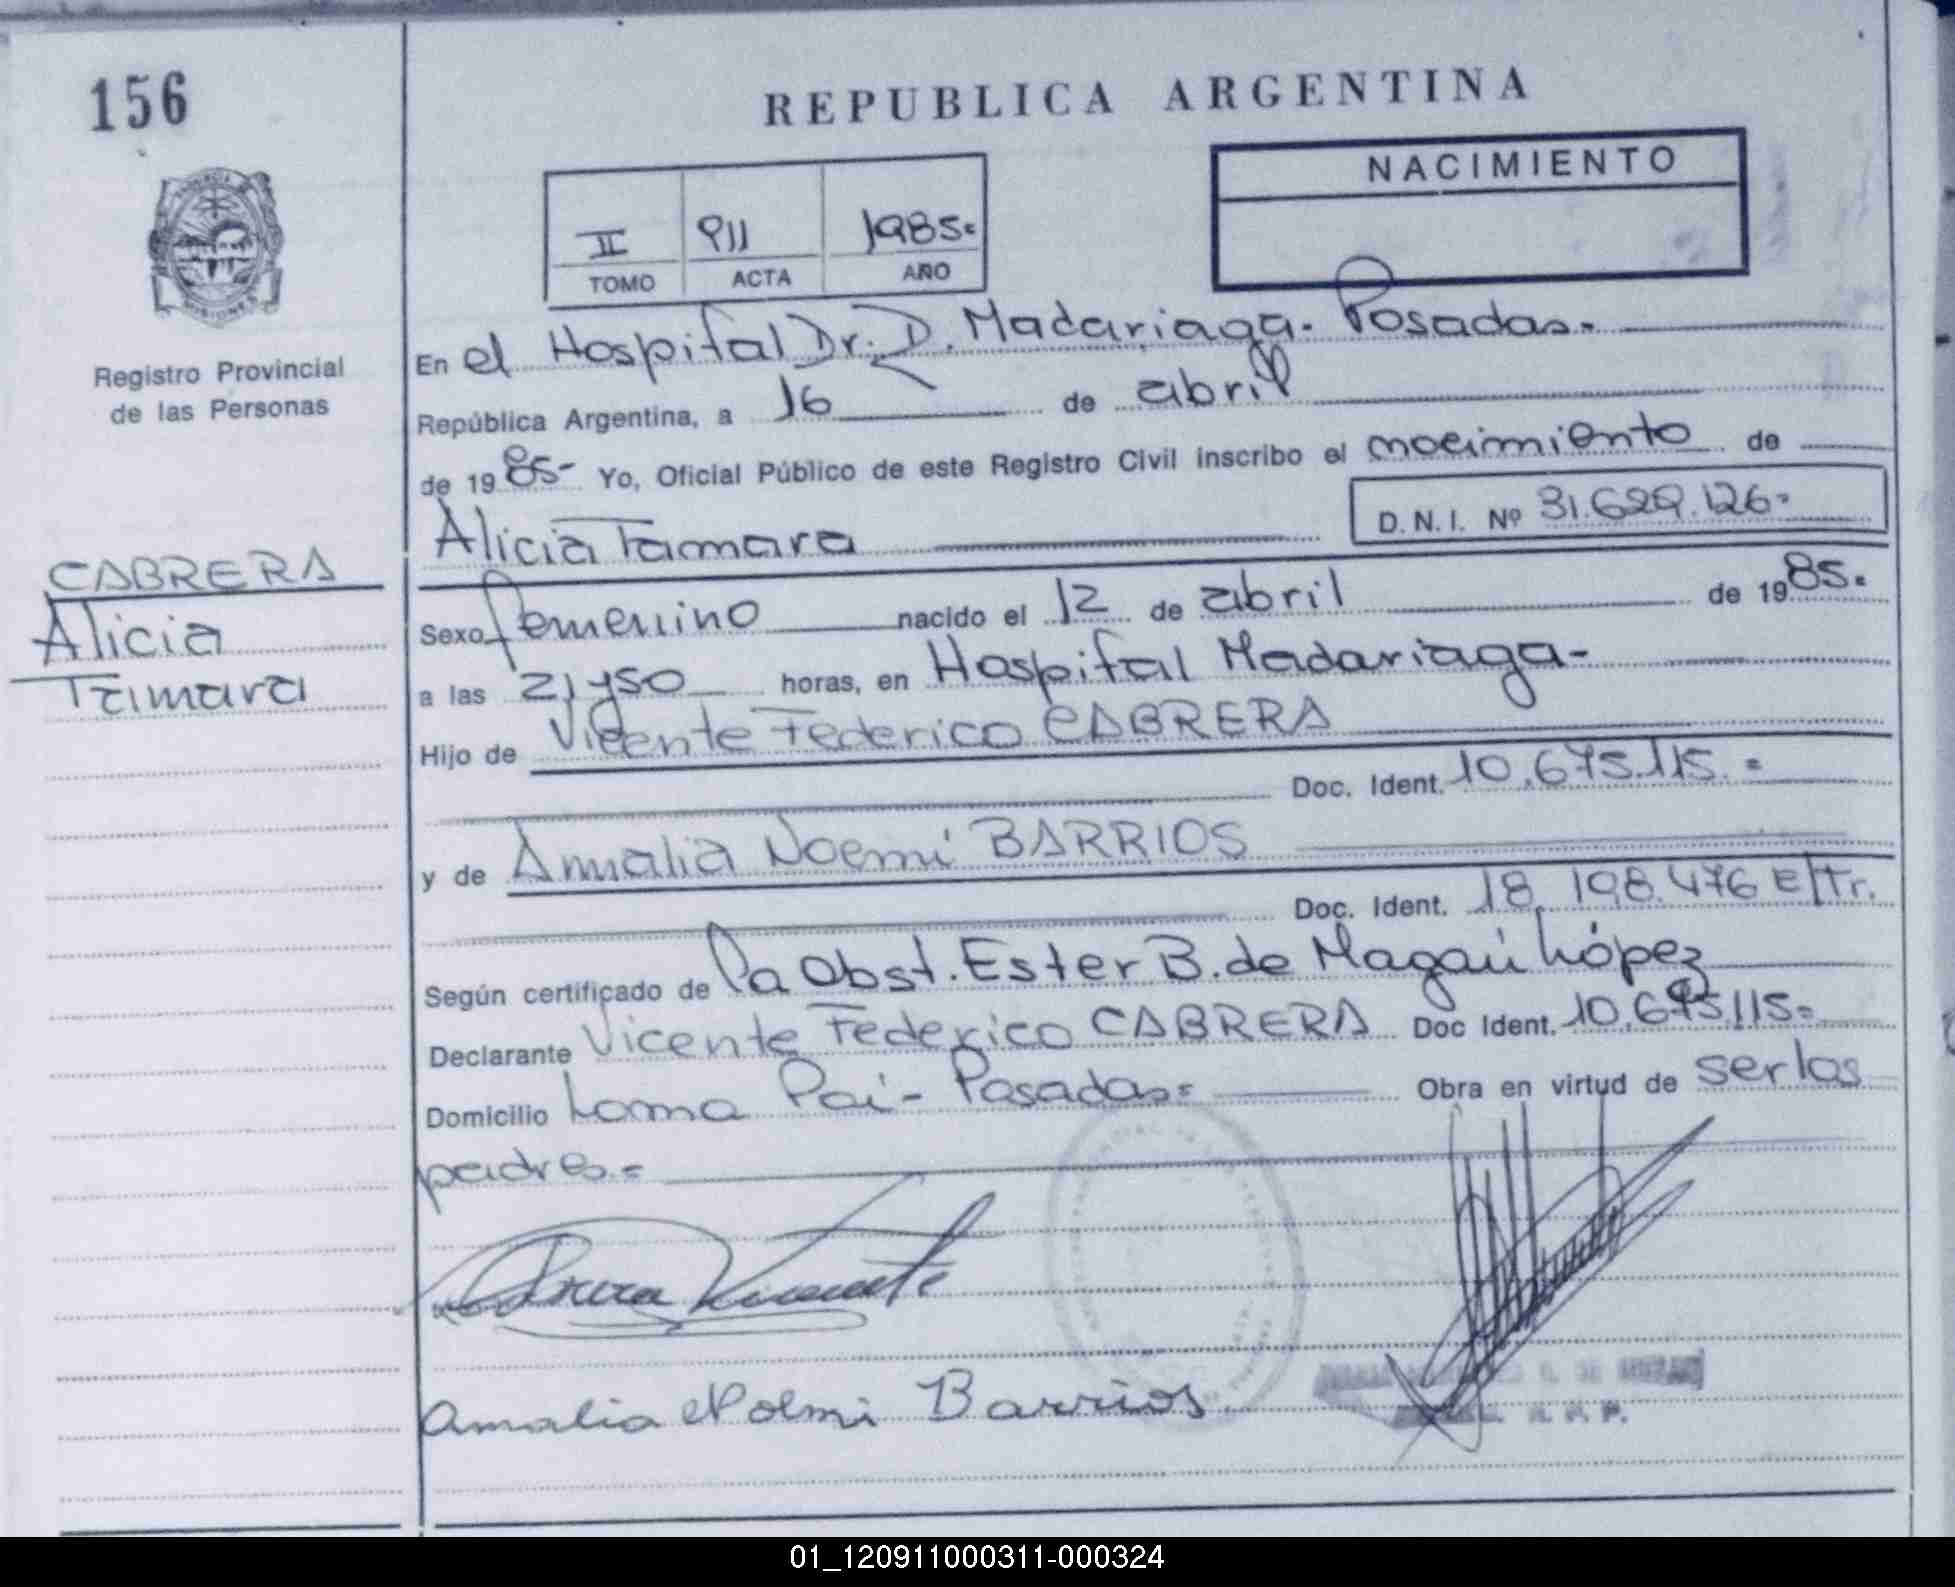 156
REPUBLICA ARGENTINA
NACIMIENTO
II 911 1985=
TOMO ACTA AÑO
PROVINCIA DE
MISIONES
Registro Provincial
de las Personas
En el Hospital Dr. D. Madariaga. Posadas.-
República Argentina, a 16 de abril
de 1985- Yo, Oficial Público de este Registro Civil inscribo el nacimiento de
Alicia Tamara D.N.I. Nº 31.629.126-
CABRERA
Alicia
Tamara
Sexo femenino nacido el 12 de abril de 1985.=
a las 21 y 50 horas, en Hospital Madariaga-
Hijo de Vicente Federico CABRERA
Doc. Ident. 10.675.115.=
y de Amalia Noemi BARRIOS
Doc. Ident. 18.198.476 E/Tr.
Según certificado de la Obst. Ester B. de Magaú López
Declarante Vicente Federico CABRERA Doc Ident. 10.675.115=
Domicilio Loma Pai- Posadas= Obra en virtud de ser los
padres.=
Cabrera Vicente
Amalia Noemi Barrios
01_120911000311-000324